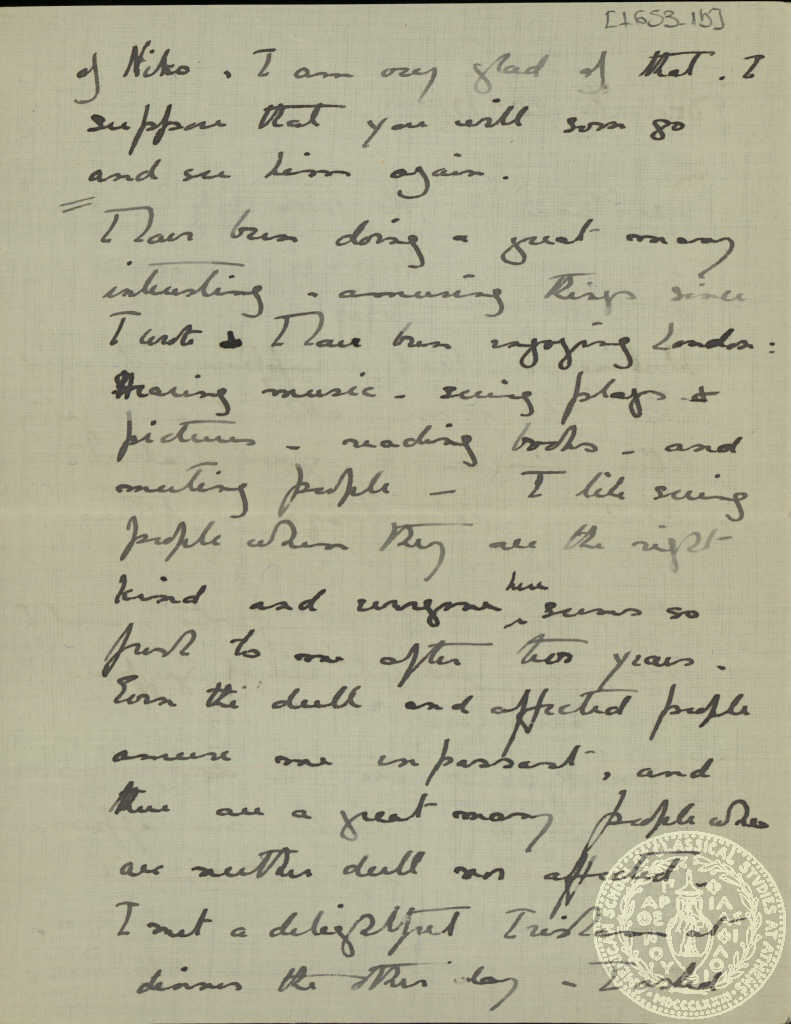 [1653-15]
of Niko. I am very glad of that. I
suppose that you will soon go
and see him again.
I have been doing a great many
interesting - amusing things since
I wrote & I have been enjoying London:
Hearing music - seeing plays &
pictures - reading books - and
meeting people - I like seeing
people when they are the right
kind and everyone here seems so
fresh to me after two years.
Even the dull and affected people
amuse me en passant, and
there are a great many people who
are neither dull nor affected.
I met a delightful Irishman at
dinner the other day - I asked
AMERICAN SCHOOL OF CLASSICAL STUDIES AT ATHENS
MDCCCLXXXI